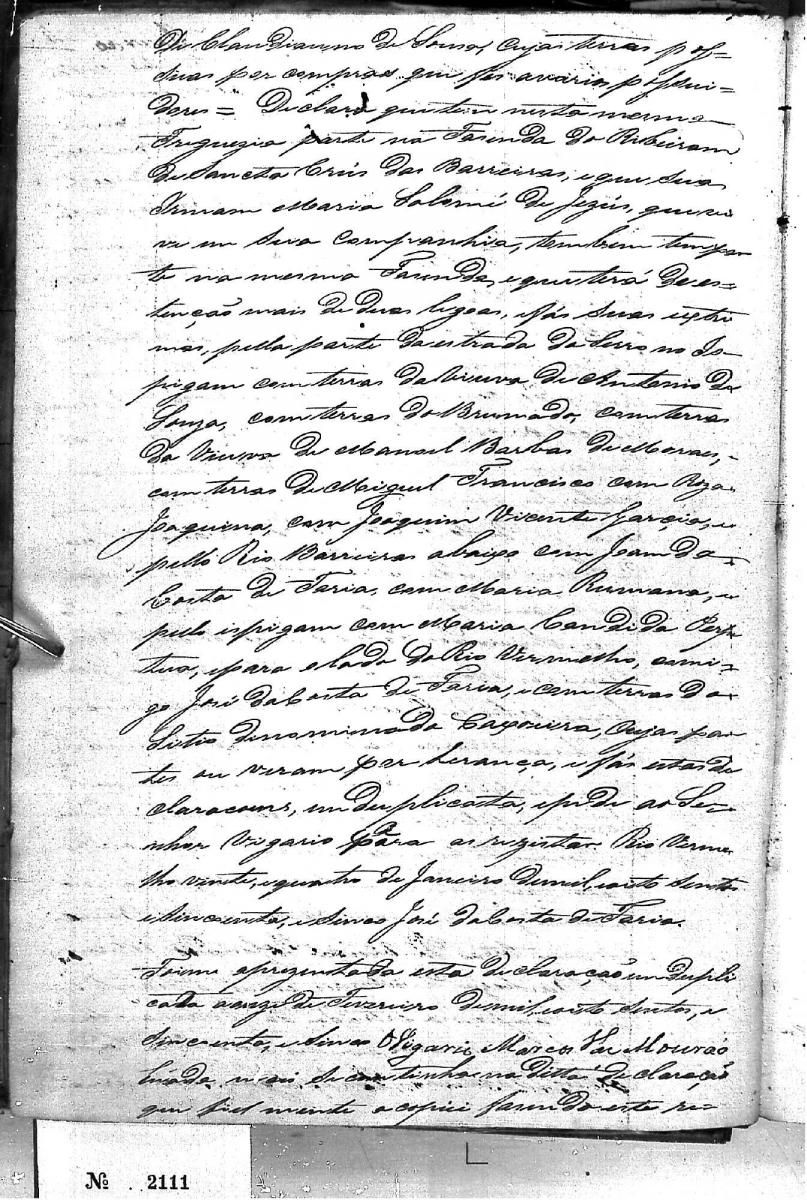 De Claudianno de Sousa, cujas terras pos=
suas por compras que fes avarios possui=
dores= Declaro que tem nesta mesma
Freguezia parte na Fasenda do Ribeiram
de Sancta Crús das Barreiras, e que sua
Irmam Maria Salomé de Jezús, que vi
ve em sua companhia, tembem tem par
te na mesma Fasenda, e que terá de es=
tenção mais de duas legoas, e fás suas extre
mas, pella parte da estrada do Serro no Is
pigam com terras da Viuva de Antonio de
Souza, com terras do Brumado, com terras
da Viuva de Manoel Barbas de Moraes,
com terras de Miguel Francisco com Roza
Joaquina, com Joaquim Vicente Garcia, e
pello Rio Barreiras abaixo com Joam da
Costa de Faria, com Maria Rumana, e
pelo ispigam com Maria Candida Perpe
tua, e para o lado do Rio Vermelho, comi=
go José da Costa de Faria, e com terras do
Sitio denominado Caxoeira, cujas par
tes ou veram por herança, e fás estas de
claracoens, em duplicata, e pede ao Se=
nhor Vigario para as rezistar. Rio Verme
lho vinte, e quatro de Janeiro de mil, oito sentos
e sincoenta, e sinco José da Costa de Faria.
Foi me aprezentada esta declaração em dupli
cada a treze de Fevereiro de mil, oito sentos, e
sincoenta, e sinco O Vigario Marcos Mourão
nada mais se continha na ditta declaração
que fiel mente a copiei fasendo este re=
№ 2111